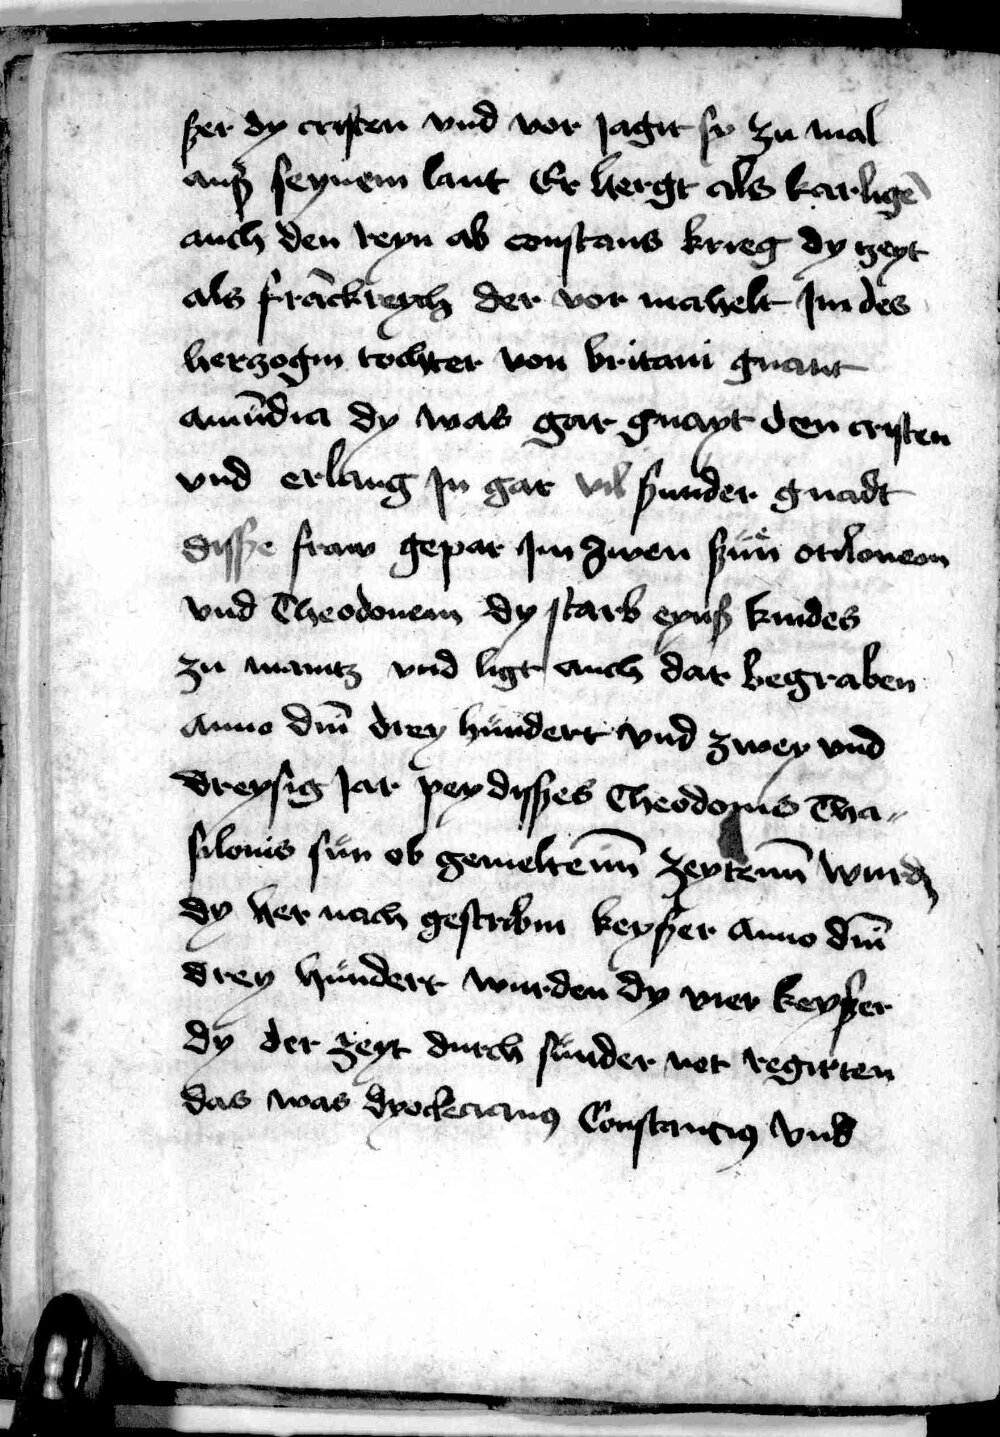 ßer dy cristen vnd vor jagit sy zu mal
auß seynem lant Er hergt als karligē
auch den reyn ab constans krieg dy zeyt
als frāckreych der vor mahelt Jm des
herzogin tochter von britani gnant
amūdia dy was gar gnayt den cristen
vnd erlang Jn gar vil sunder gnadt
disße fraw gepar Jm zwen sün otiloneon
vnd Theodonem dy starb eynß kindes
zu maintz vnd ligt auch dar begraben
anno dm̄ drey hundert vnd zwey vnd
dreysig Jar pey disßes Theodonis Tha„
silonis sun ob gemeltenn̄ zeytenn̄ wurdn
dy her nach gescribm keyßer anno dm̄
drey hundert wurden dy vier keyßer
dy der zeyt durch sunder not regirten
das was dyoclecianꝰ Constanciꝰ vnd